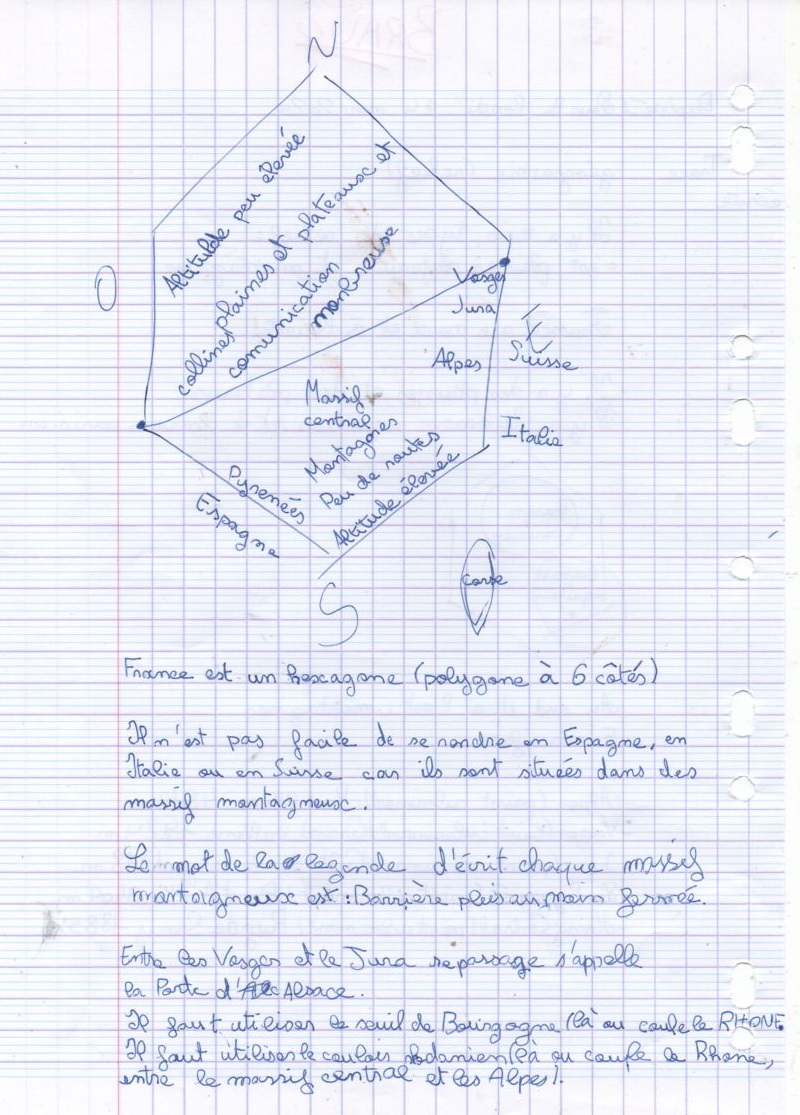 N
Altitulde peu élevée
collines plaines et plateausc et
comunication
monbreuse
O
Vosges
Jura
E
Alpes
Suisse
Massif
central
Montagnes
Peu de routes
Altitude élevée
Italie
Pyreneés
Espagne
S
corse
France est un hescagone (polygone à 6 côtés)
Il n'est pas facile de se rendre en Espagne, en
Italie ou en Suisse car ils sont situeés dans des
massif montagneusc.
Le mot de la legende d'écrit chaque massif
montaigneux est : Barrière pleis au moin fermée.
Entre les Vosges et le Jura se passage s'appelle
la Porte d'Alsace.
Il faut utiliser le seuil de Bourgogne (là ou coule le RHONE
Il faut utiliser le couloir rodanien (là ou coule le Rhone,
entre le massif central et les Alpes).